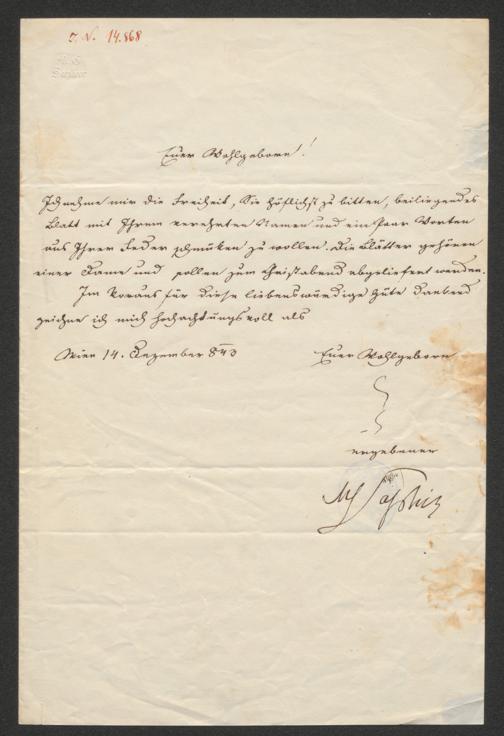 I. N. 14.868
Euer Wohlgeboren!
Ich nehme mir die Freiheit, Sie höflichst zu bitten, beiliegendes
Blatt mit Ihrem verehrten Namen und ein Paar Worten
aus Ihrer Feder schmüken zu wollen. Die Blätter gehören
einer Dame und sollen zum Christabend abgeliefert werden.
Im Voraus für diese liebenswürdige Güte dankend
zeichne ich mich hochachtungsvoll als
Wien 14. Dezember 843
Euer Wohlgeborn
ergebener